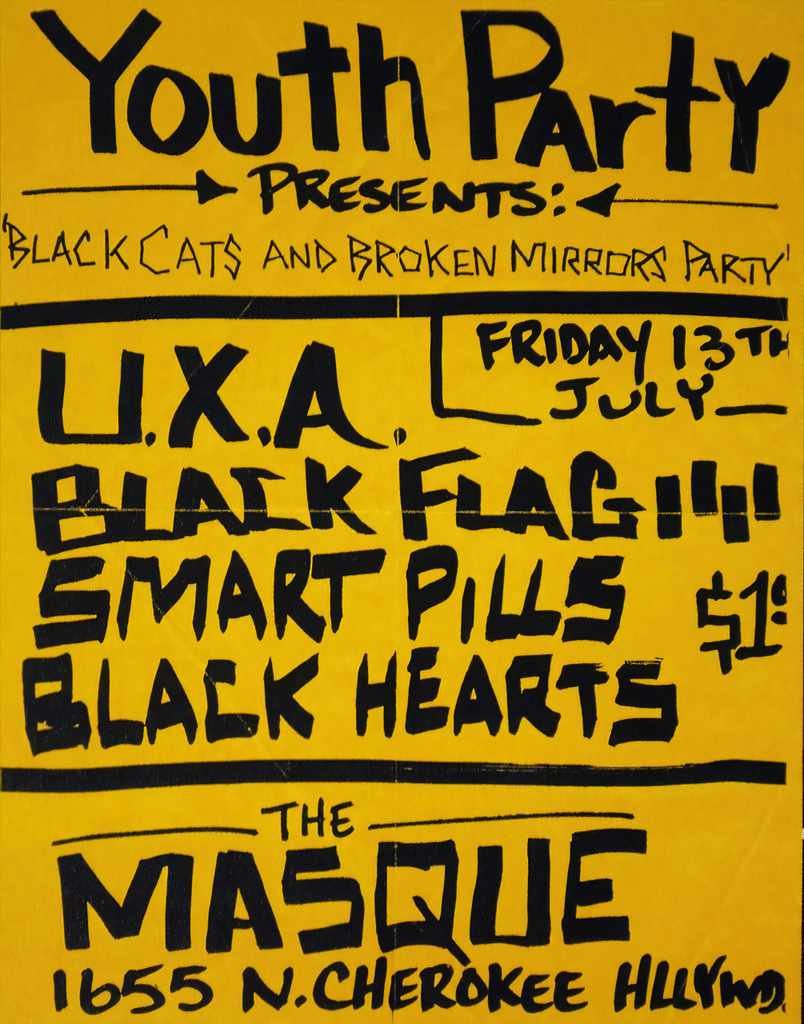 Youth Party
PRESENTS:
'BLACK CATS AND BROKEN MIRRORS PARTY'
FRIDAY 13TH
JULY
U.X.A.
BLACK FLAG
SMART PILLS
$1.00
BLACK HEARTS
THE
MASQUE
1655 N. CHEROKEE HLLYWD.